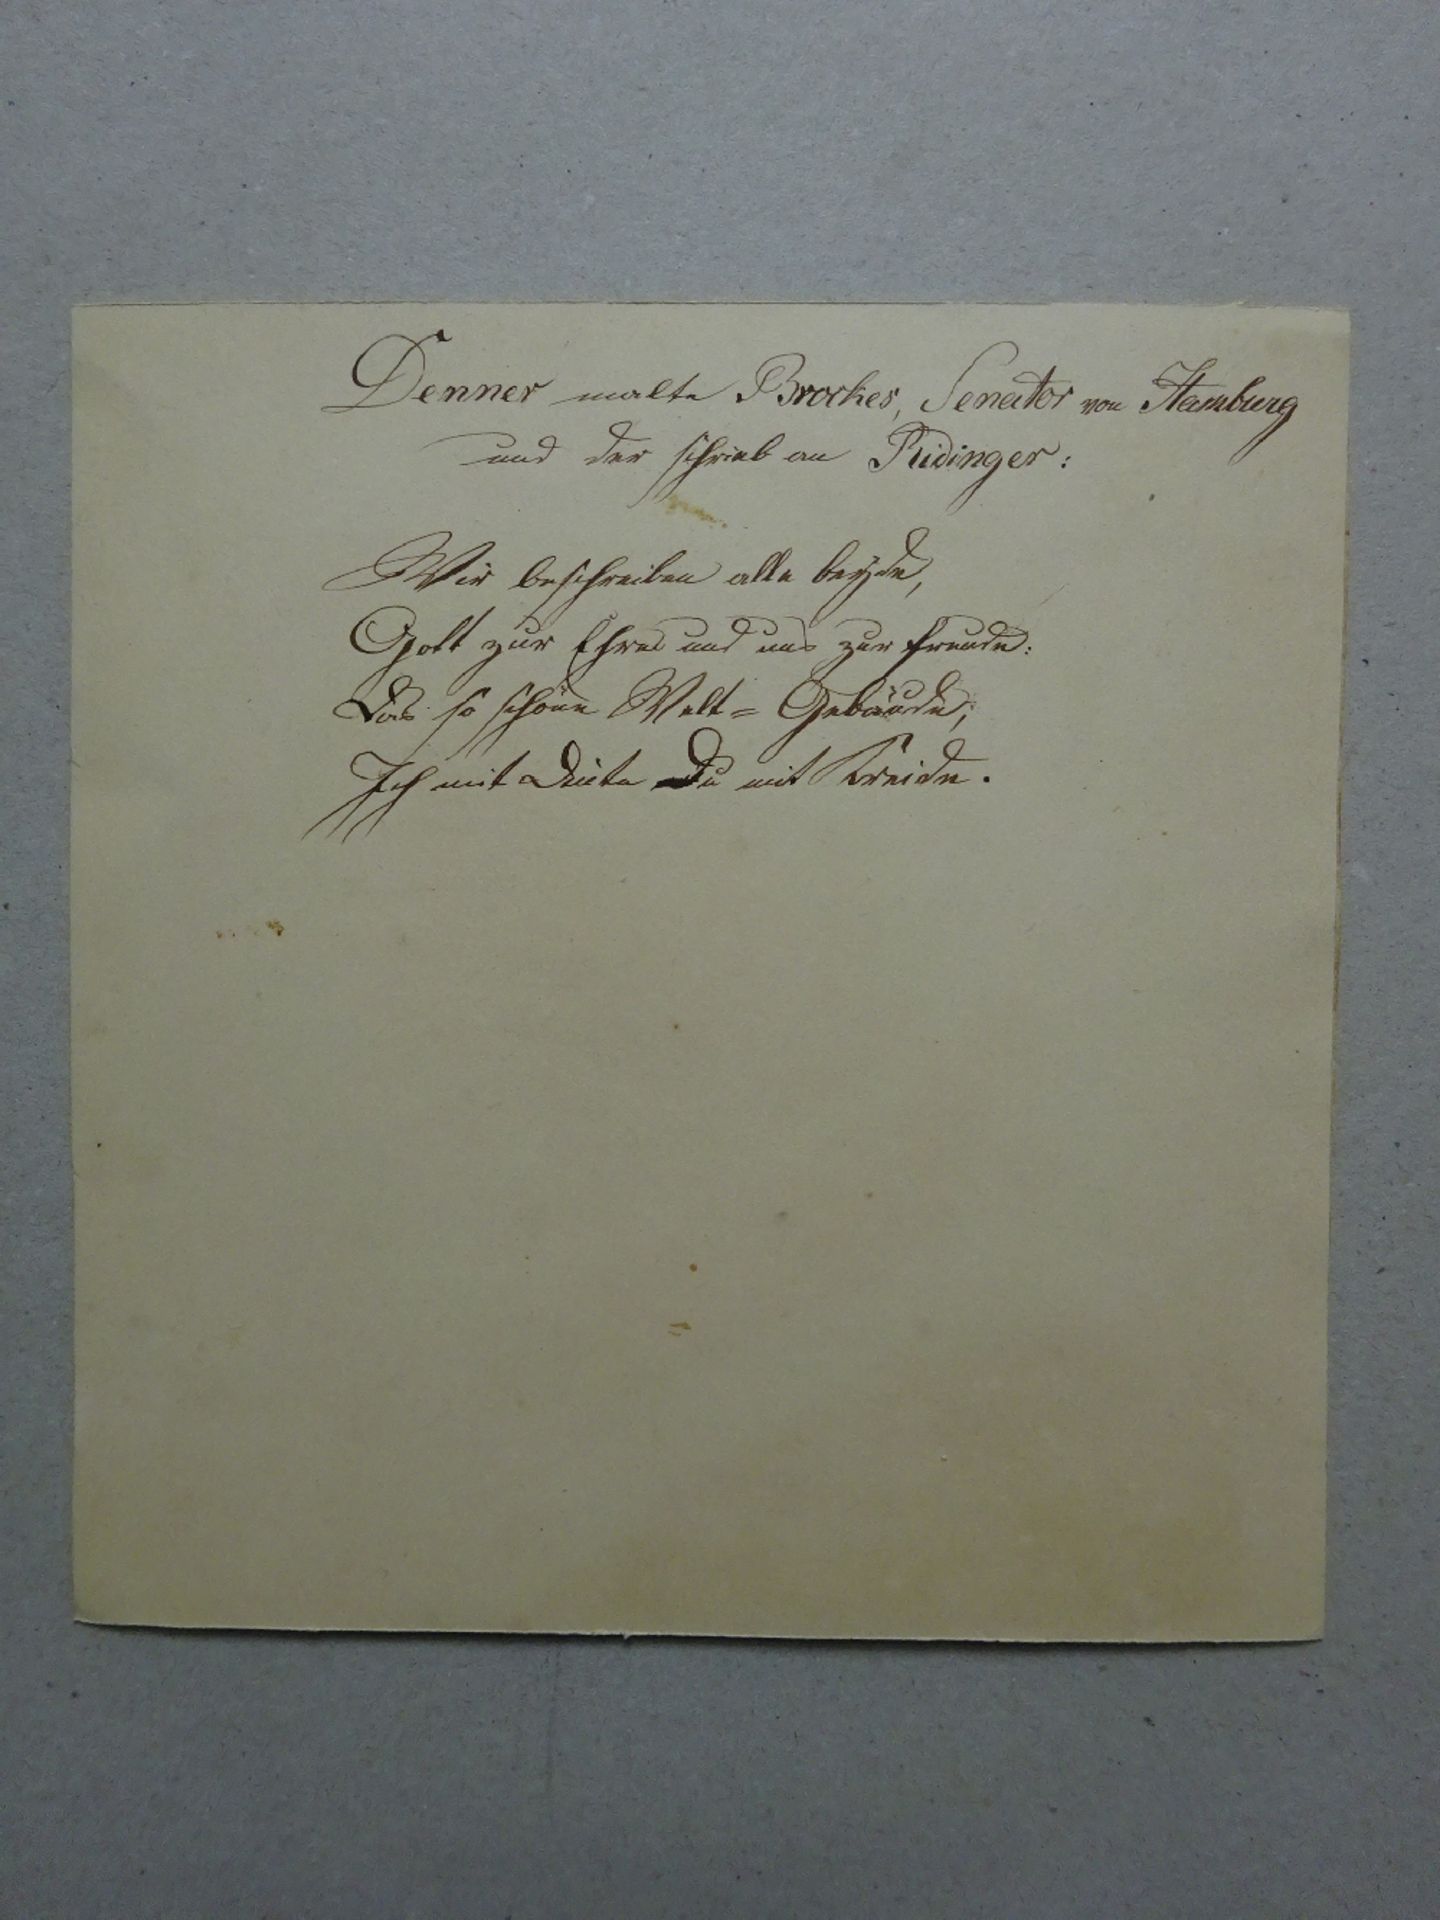 Denner malte Brockes, Senator von Hamburg
und der schrieb an Ridinger:
Wir beschreiben alle beÿde,
Gott zur Ehre und uns zur Freude:
Das so schöne Welt=Gebäude,
Ich mit Dinte Du mit Kreide.